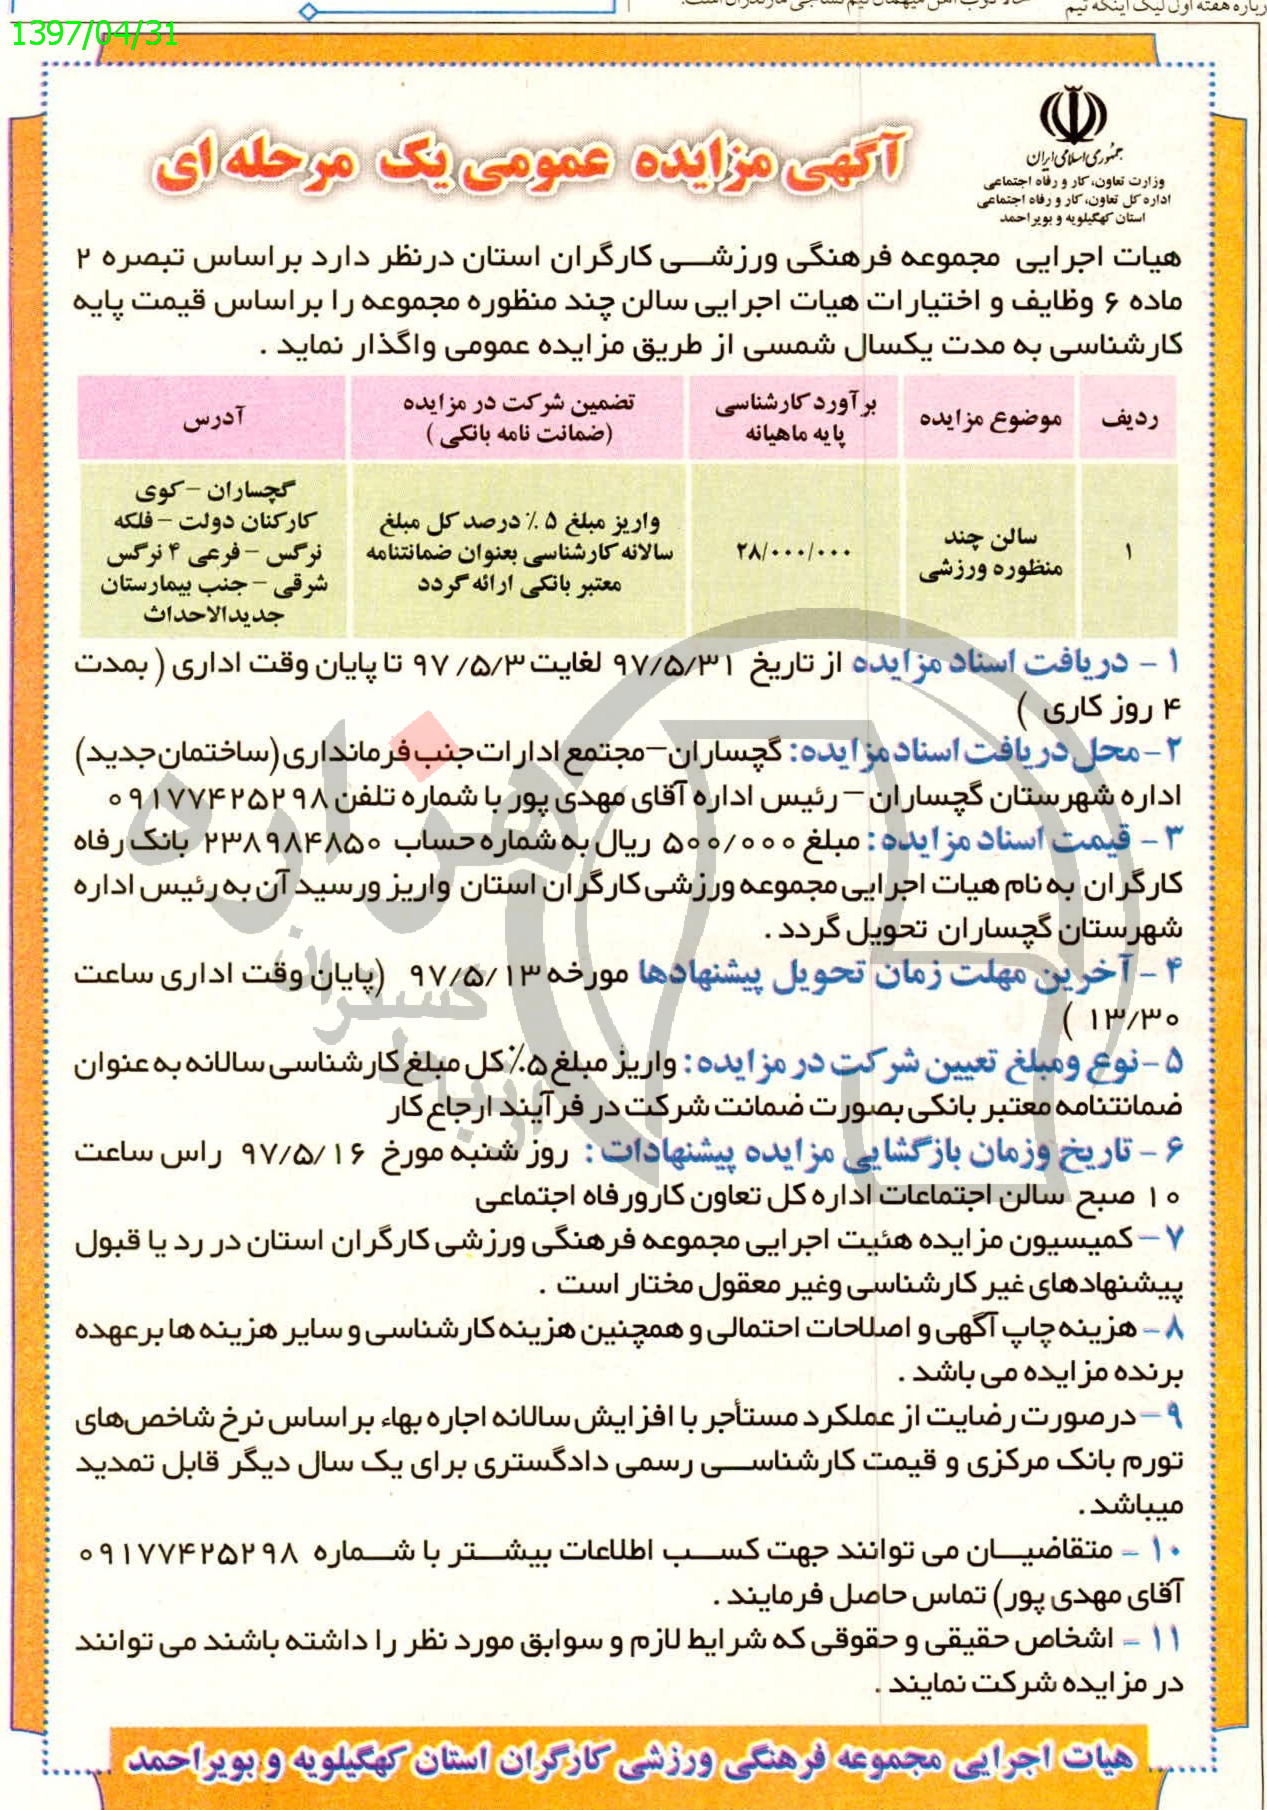 رباره هفته اول لیگ اینکه تیم
1397/04/31
جمهوری اسلامی ایران
وزارت تعاون، کار و رفاه اجتماعی
اداره کل تعاون، کار و رفاه اجتماعی
استان کهگیلویه و بویراحمد
آگهی مزایده عمومی یک مرحله ای
هیات اجرایی مجموعه فرهنگی ورزشی کارگران استان درنظر دارد براساس تبصره ۲
ماده ۶ وظایف و اختیارات هیات اجرایی سالن چند منظوره مجموعه را براساس قیمت پایه
کارشناسی به مدت یکسال شمسی از طریق مزایده عمومی واگذار نماید .
ردیف
موضوع مزایده
برآورد کارشناسی
پایه ماهیانه
تضمین شرکت در مزایده
(ضمانت نامه بانکی )
آدرس
۱
سالن چند
منظوره ورزشی
۲۸/۰۰۰/۰۰۰
واریز مبلغ ۵ ٪ درصد کل مبلغ
سالانه کارشناسی بعنوان ضمانتنامه
معتبر بانکی ارائه گردد
گچساران – کوی
کارکنان دولت – فلکه
نرگس – فرعی ۴ نرگس
شرقی – جنب بیمارستان
جدیدالاحداث
۱ – دریافت اسناد مزایده از تاریخ ۹۷/۵/۳۱ لغایت ۹۷/۵/۳ تا پایان وقت اداری ( بمدت
۴ روز کاری )
۲ – محل دریافت اسناد مزایده: گچساران – مجتمع ادارات جنب فرمانداری (ساختمان جدید)
اداره شهرستان گچساران – رئیس اداره آقای مهدی پور با شماره تلفن ۰۹۱۷۷۴۲۵۲۹۸
۳ – قیمت اسناد مزایده: مبلغ ۵۰۰/۰۰۰ ریال به شماره حساب ۲۳۸۹۸۴۸۵۰ بانک رفاه
کارگران به نام هیات اجرایی مجموعه ورزشی کارگران استان واریز ورسید آن به رئیس اداره
شهرستان گچساران تحویل گردد .
۴ – آخرین مهلت زمان تحویل پیشنهادها مورخه ۹۷/۵/۱۳ (پایان وقت اداری ساعت
۱۳/۳۰ )
۵ – نوع ومبلغ تعیین شرکت در مزایده: واریز مبلغ ۵٪ کل مبلغ کارشناسی سالانه به عنوان
ضمانتنامه معتبر بانکی بصورت ضمانت شرکت در فرآیند ارجاع کار
۶ – تاریخ وزمان بازگشایی مزایده پیشنهادات : روز شنبه مورخ ۹۷/۵/۱۶ راس ساعت
۱۰ صبح سالن اجتماعات اداره کل تعاون کارورفاه اجتماعی
۷ – کمیسیون مزایده هئیت اجرایی مجموعه فرهنگی ورزشی کارگران استان در رد یا قبول
پیشنهادهای غیر کارشناسی وغیر معقول مختار است .
۸ – هزینه چاپ آگهی و اصلاحات احتمالی و همچنین هزینه کارشناسی و سایر هزینه ها برعهده
برنده مزایده می باشد .
۹ – درصورت رضایت از عملکرد مستأجر با افزایش سالانه اجاره بهاء براساس نرخ شاخص‌های
تورم بانک مرکزی و قیمت کارشناسی رسمی دادگستری برای یک سال دیگر قابل تمدید
میباشد .
۱۰ – متقاضیان می توانند جهت کسب اطلاعات بیشتر با شماره ۰۹۱۷۷۴۲۵۲۹۸
آقای مهدی پور) تماس حاصل فرمایند .
۱۱ – اشخاص حقیقی و حقوقی که شرایط لازم و سوابق مورد نظر را داشته باشند می توانند
در مزایده شرکت نمایند .
هیات اجرایی مجموعه فرهنگی ورزشی کارگران استان کهگیلویه و بویراحمد